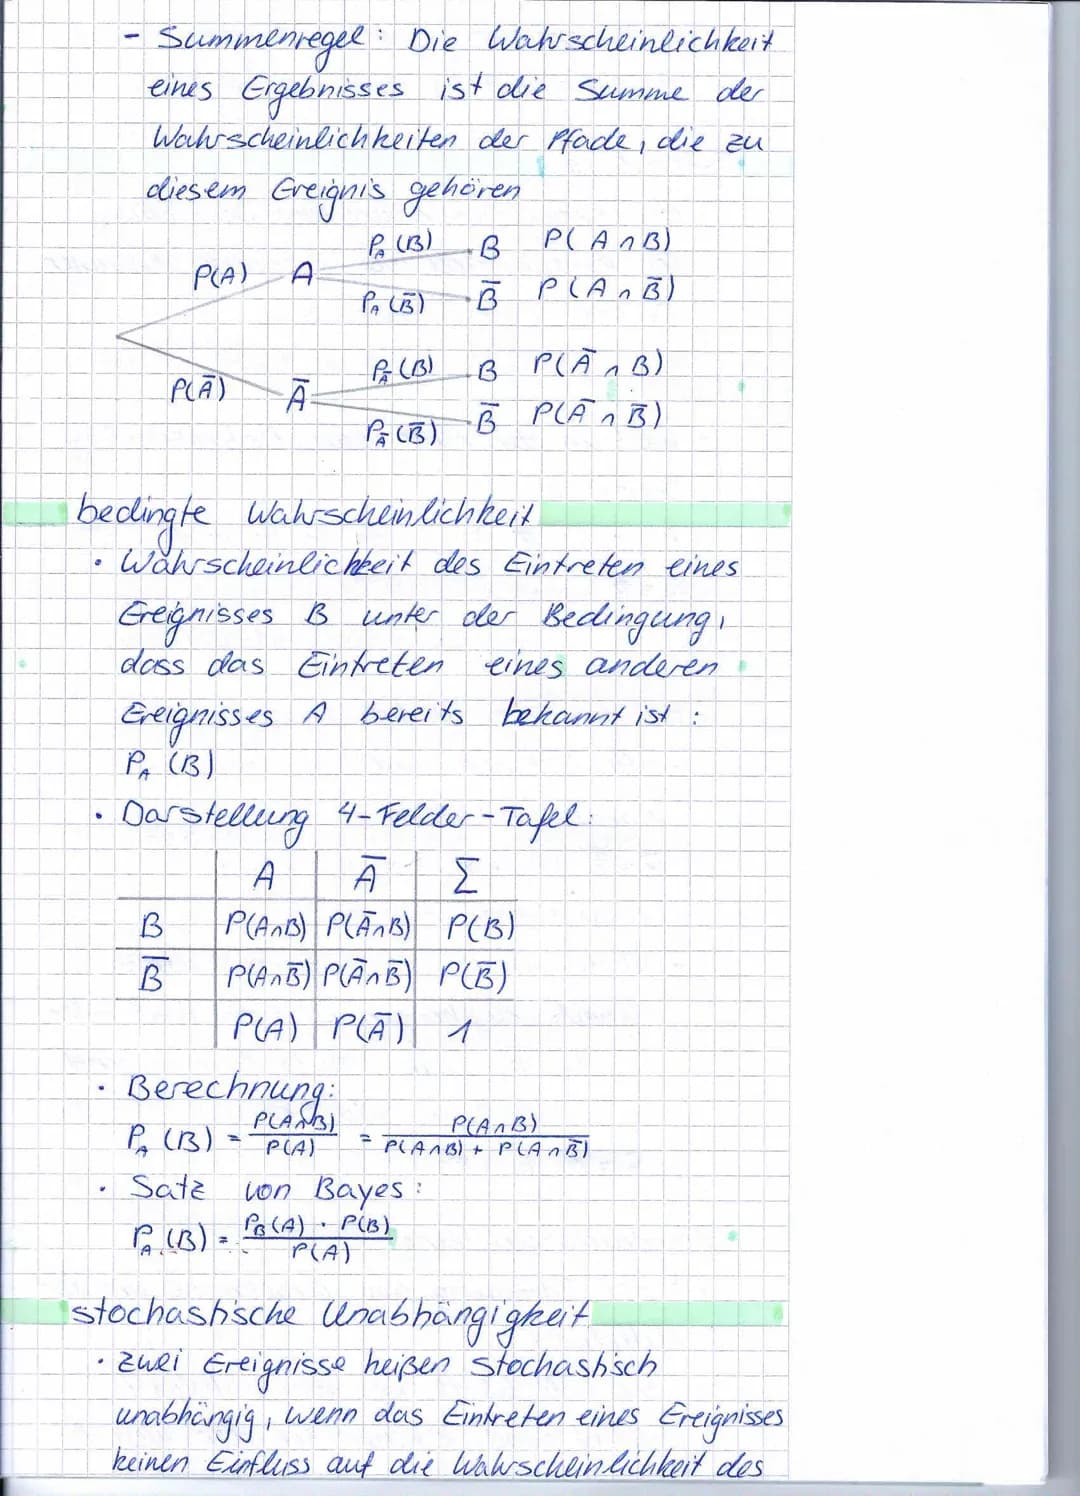 - Summenregel: Die Wahrscheinlichkeit
eines Ergebnisses ist die Summe der
Wahrscheinlichkeiten der Pfade, die zu
diesem Ereignis gehören
P_A (B) B P(A∩B)
P(A) A
P_A (B̅) B̅ P(A∩B̅)
P_A̅ (B) B P(A̅∩B)
P(A̅) A̅
P_A̅ (B̅) B̅ P(A̅∩B̅)
bedingte Wahrscheinlichkeit
• Wahrscheinlichkeit des Eintreten eines
Ereignisses B unter der Bedingung,
dass das Eintreten eines anderen
Ereignisses A bereits bekannt ist:
P_A (B)
• Darstellung 4-Felder-Tafel:
A A̅ Σ
B P(A∩B) P(A̅∩B) P(B)
B̅ P(A∩B̅) P(A̅∩B̅) P(B̅)
P(A) P(A̅) 1
• Berechnung:
P_A (B) = P(A∩B)/P(A) = P(A∩B)/(P(A∩B) + P(A∩B̅))
• Satz von Bayes:
P_A (B) = (P_B (A) · P(B))/P(A)
stochastische Unabhängigkeit
• zwei Ereignisse heißen stochastisch
unabhängig, wenn das Eintreten eines Ereignisses
keinen Einfluss auf die Wahrscheinlichkeit des